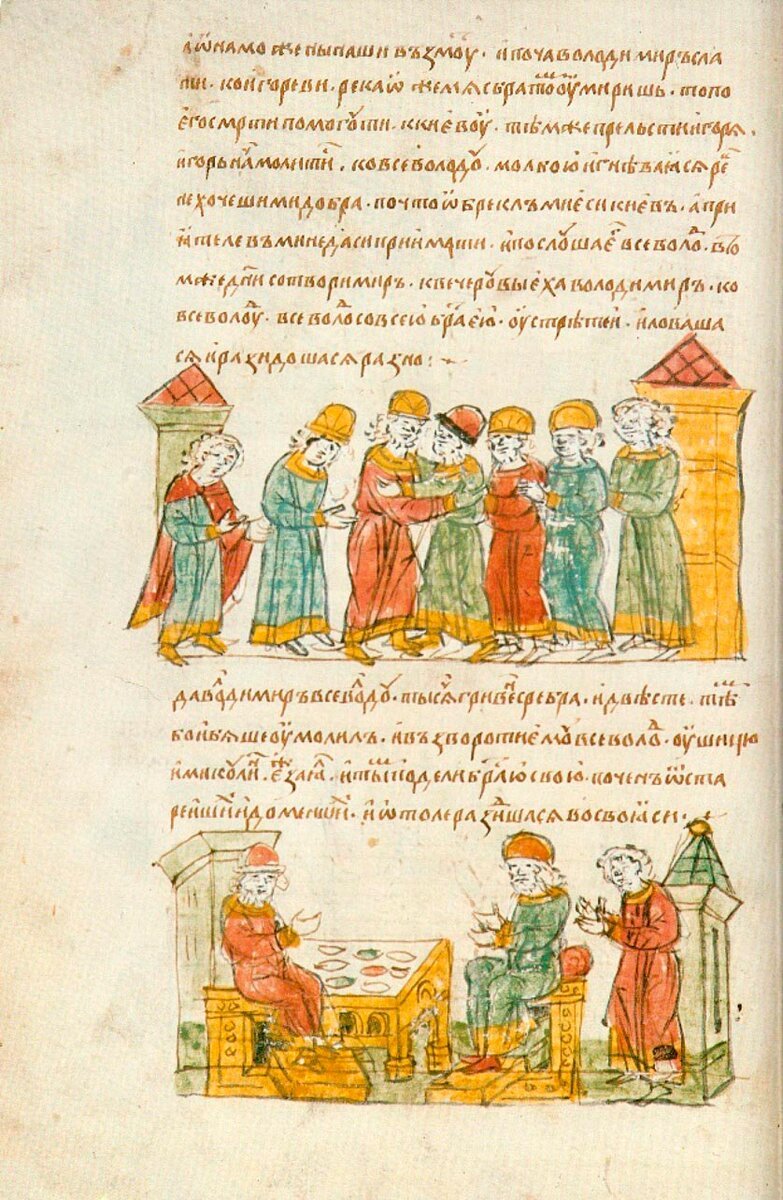 а ѿнамо жены наши въꙁмоу · и поча володимиръ сла
ти · ко игореви · река ѡже мѧ с братоⷨ оумиришь · то по
его смр҃ти помогоу ти · к киевоу · тѣм же прельсти игорѧ ·
игорь нⷱа молитиⷭ · ко всеволодоу · молкою и гнѣваꙗсѧ реⷱ
не хочеши ми добра · почто ѡбреклъ ми еси киевъ · а при
ꙗтелевъ ми не даси приимати · и послоуша еⷢ всеволоⷣ · в то
м же дн҃и сотвори миръ · к вечероу выеха володимиръ · ко
всеволоⷣу · всеволоⷣ со всею браⷮею · оустрѣте и · и ловаша
сѧ и разидошасѧ разно :
да волоⷣимиръ всеволоⷣу · тысѧⷱ гривеⷩ сребра · и двѣсте · тѣⷨ
бо и бѧше оумолилъ · и възворотї емоу всеволоⷣ · оушицю
и микоулиⷩ · еⷤ заꙗⷧ · и тⷹ подели браⷮю свою · поченъ ѿ ста
реишиⷯ и до меншиⷯ · и ѿтоле разⷣишасѧ во своꙗси ·